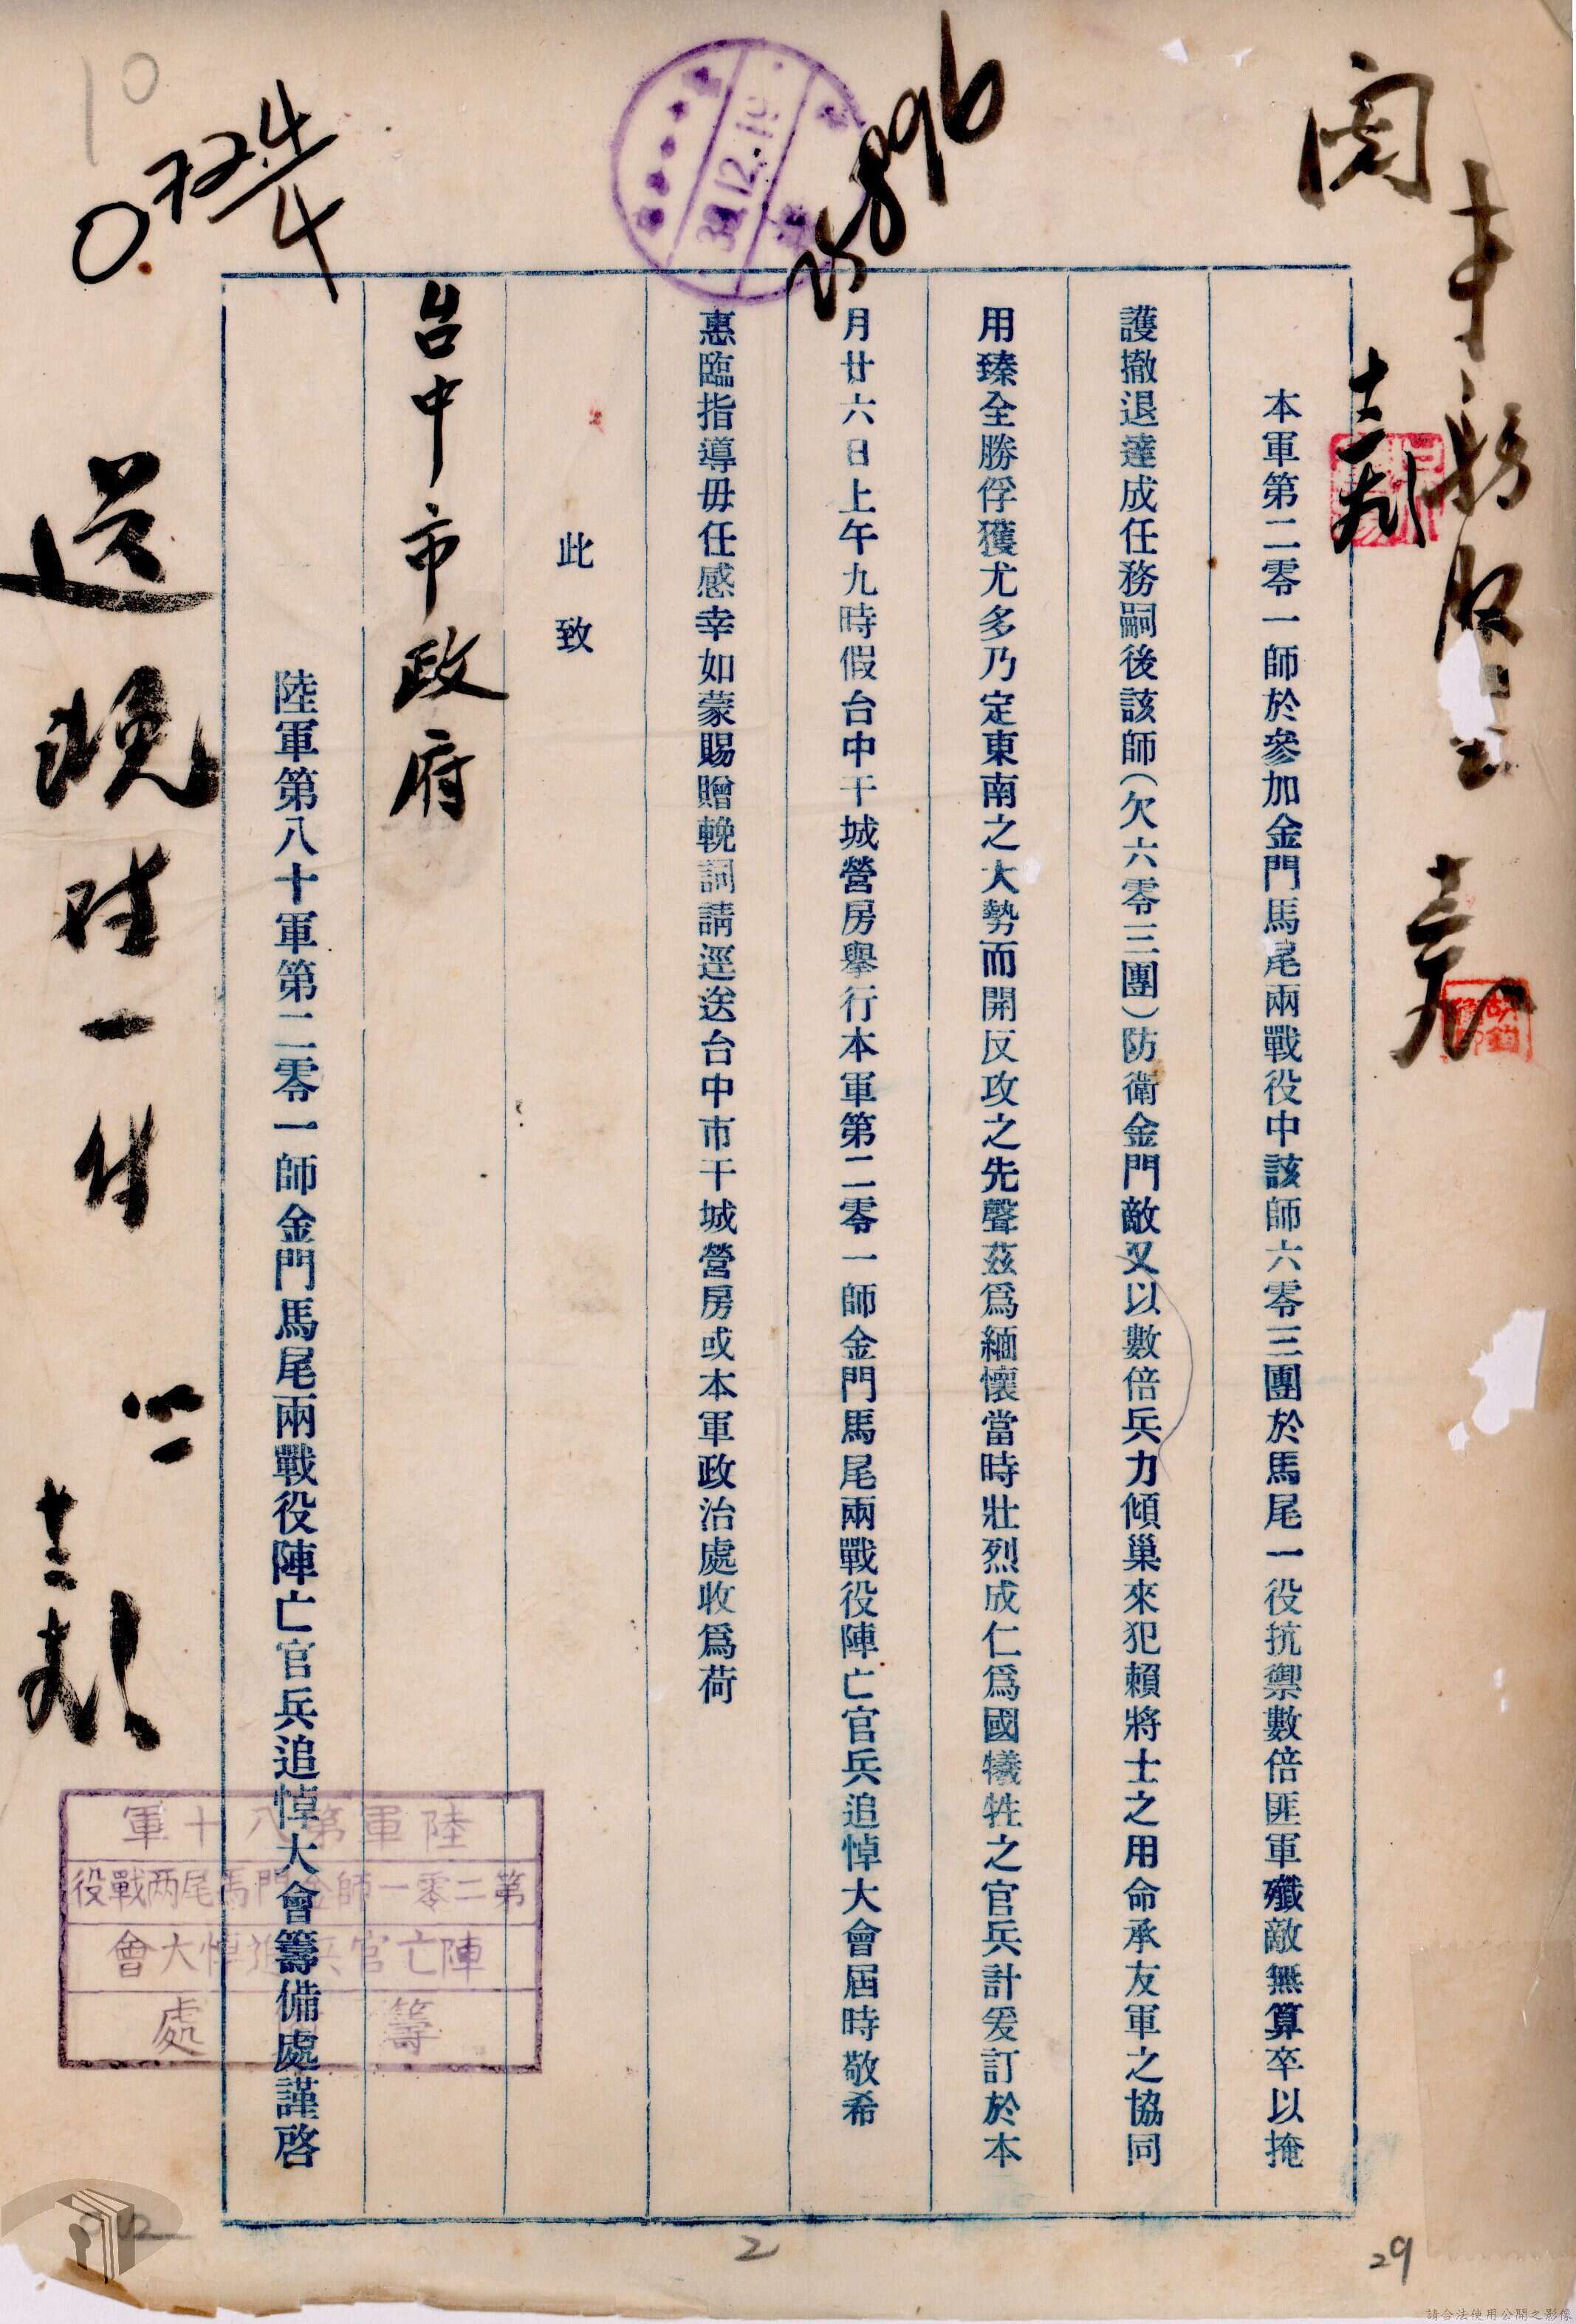 閱
本軍第二零一師於參加金門馬尾兩戰役中該師六零三團於馬尾一役抗禦數倍匪軍殲敵無算卒以掩
護撤退達成任務嗣後該師(欠六零三團)防衛金門敵又以數倍兵力傾巢來犯賴將士之用命承友軍之協同
用臻全勝俘獲尤多乃定東南之大勢而開反攻之先聲茲爲緬懷當時壯烈成仁爲國犧牲之官兵計爰訂於本
月廿六日上午九時假台中干城營房舉行本軍第二零一師金門馬尾兩戰役陣亡官兵追悼大會屆時敬希
惠臨指導毋任感幸如蒙賜贈輓詞請逕送台中市干城營房或本軍政治處收爲荷
此致
台中市政府
陸軍第八十軍第二零一師金門馬尾兩戰役陣亡官兵追悼大會籌備處謹啓
陸軍第八十軍
第二零一師金門馬尾两戰役
陣亡官兵追悼大會
籌 處
38.12.19.
10
2
29
請合法使用公開之影像